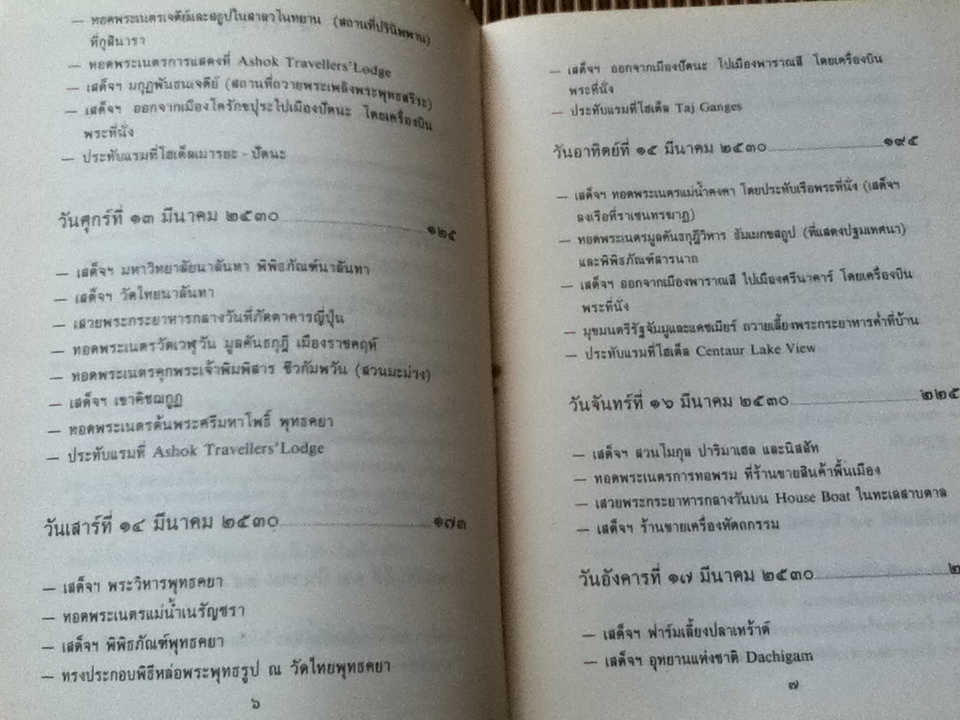 – ทอดพระเนตรเจดีย์และสถูปในสาลวโนทยาน (สถานที่ปรินิพพาน)
ที่กุสินารา
– ทอดพระเนตรการแสดงที่ Ashok Travellers' Lodge
– เสด็จฯ มกุฏพันธนเจดีย์ (สถานที่ถวายพระเพลิงพระพุทธสรีระ)
– เสด็จฯ ออกจากเมืองโครักขปุระไปเมืองปัตนะ โดยเครื่องบิน
พระที่นั่ง
– ประทับแรมที่โฮเต็ลเมารยะ - ปัตนะ
วันศุกร์ที่ ๑๓ มีนาคม ๒๕๓๐ ๑๒๕
– เสด็จฯ มหาวิทยาลัยนาลันทา พิพิธภัณฑ์นาลันทา
– เสด็จฯ วัดไทยนาลันทา
– เสวยพระกระยาหารกลางวันที่ภัตตาคารญี่ปุ่น
– ทอดพระเนตรวัดเวฬุวัน มูลคันธกุฎี เมืองราชคฤห์
– ทอดพระเนตรคุกพระเจ้าพิมพิสาร ชีวกัมพวัน (สวนมะม่วง)
– เสด็จฯ เขาคิชฌกูฏ
– ทอดพระเนตรต้นพระศรีมหาโพธิ์ พุทธคยา
– ประทับแรมที่ Ashok Travellers' Lodge
วันเสาร์ที่ ๑๔ มีนาคม ๒๕๓๐ ๑๗๓
– เสด็จฯ พระวิหารพุทธคยา
– ทอดพระเนตรแม่น้ำเนรัญชรา
– เสด็จฯ พิพิธภัณฑ์พุทธคยา
– ทรงประกอบพิธีหล่อพระพุทธรูป ณ วัดไทยพุทธคยา
๖
– เสด็จฯ ออกจากเมืองปัตนะ ไปเมืองพาราณสี โดยเครื่องบิน
พระที่นั่ง
– ประทับแรมที่โฮเต็ล Taj Ganges
วันอาทิตย์ที่ ๑๕ มีนาคม ๒๕๓๐ ๑๙๕
– เสด็จฯ ทอดพระเนตรแม่น้ำคงคา โดยประทับเรือพระที่นั่ง (เสด็จฯ
ลงเรือที่ราเชนทรฆาฏ)
– ทอดพระเนตรมูลคันธกุฎีวิหาร ธัมเมกขสถูป (ที่แสดงปฐมเทศนา)
และพิพิธภัณฑ์สารนาถ
– เสด็จฯ ออกจากเมืองพาราณสี ไปเมืองศรีนาคาร์ โดยเครื่องบิน
พระที่นั่ง
– มุขมนตรีรัฐจัมมูและแคชเมียร์ ถวายเลี้ยงพระกระยาหารค่ำที่บ้าน
– ประทับแรมที่โฮเต็ล Centaur Lake View
วันจันทร์ที่ ๑๖ มีนาคม ๒๕๓๐ ๒๒๕
– เสด็จฯ สวนโมกุล ปาริมาเฮล และนิสสัท
– ทอดพระเนตรการทอพรม ที่ร้านขายสินค้าพื้นเมือง
– เสวยพระกระยาหารกลางวันบน House Boat ในทะเลสาบดาล
– เสด็จฯ ร้านขายเครื่องหัตถกรรม
วันอังคารที่ ๑๗ มีนาคม ๒๕๓๐
– เสด็จฯ ฟาร์มเลี้ยงปลาเทร้าต์
– เสด็จฯ อุทยานแห่งชาติ Dachigam
๗